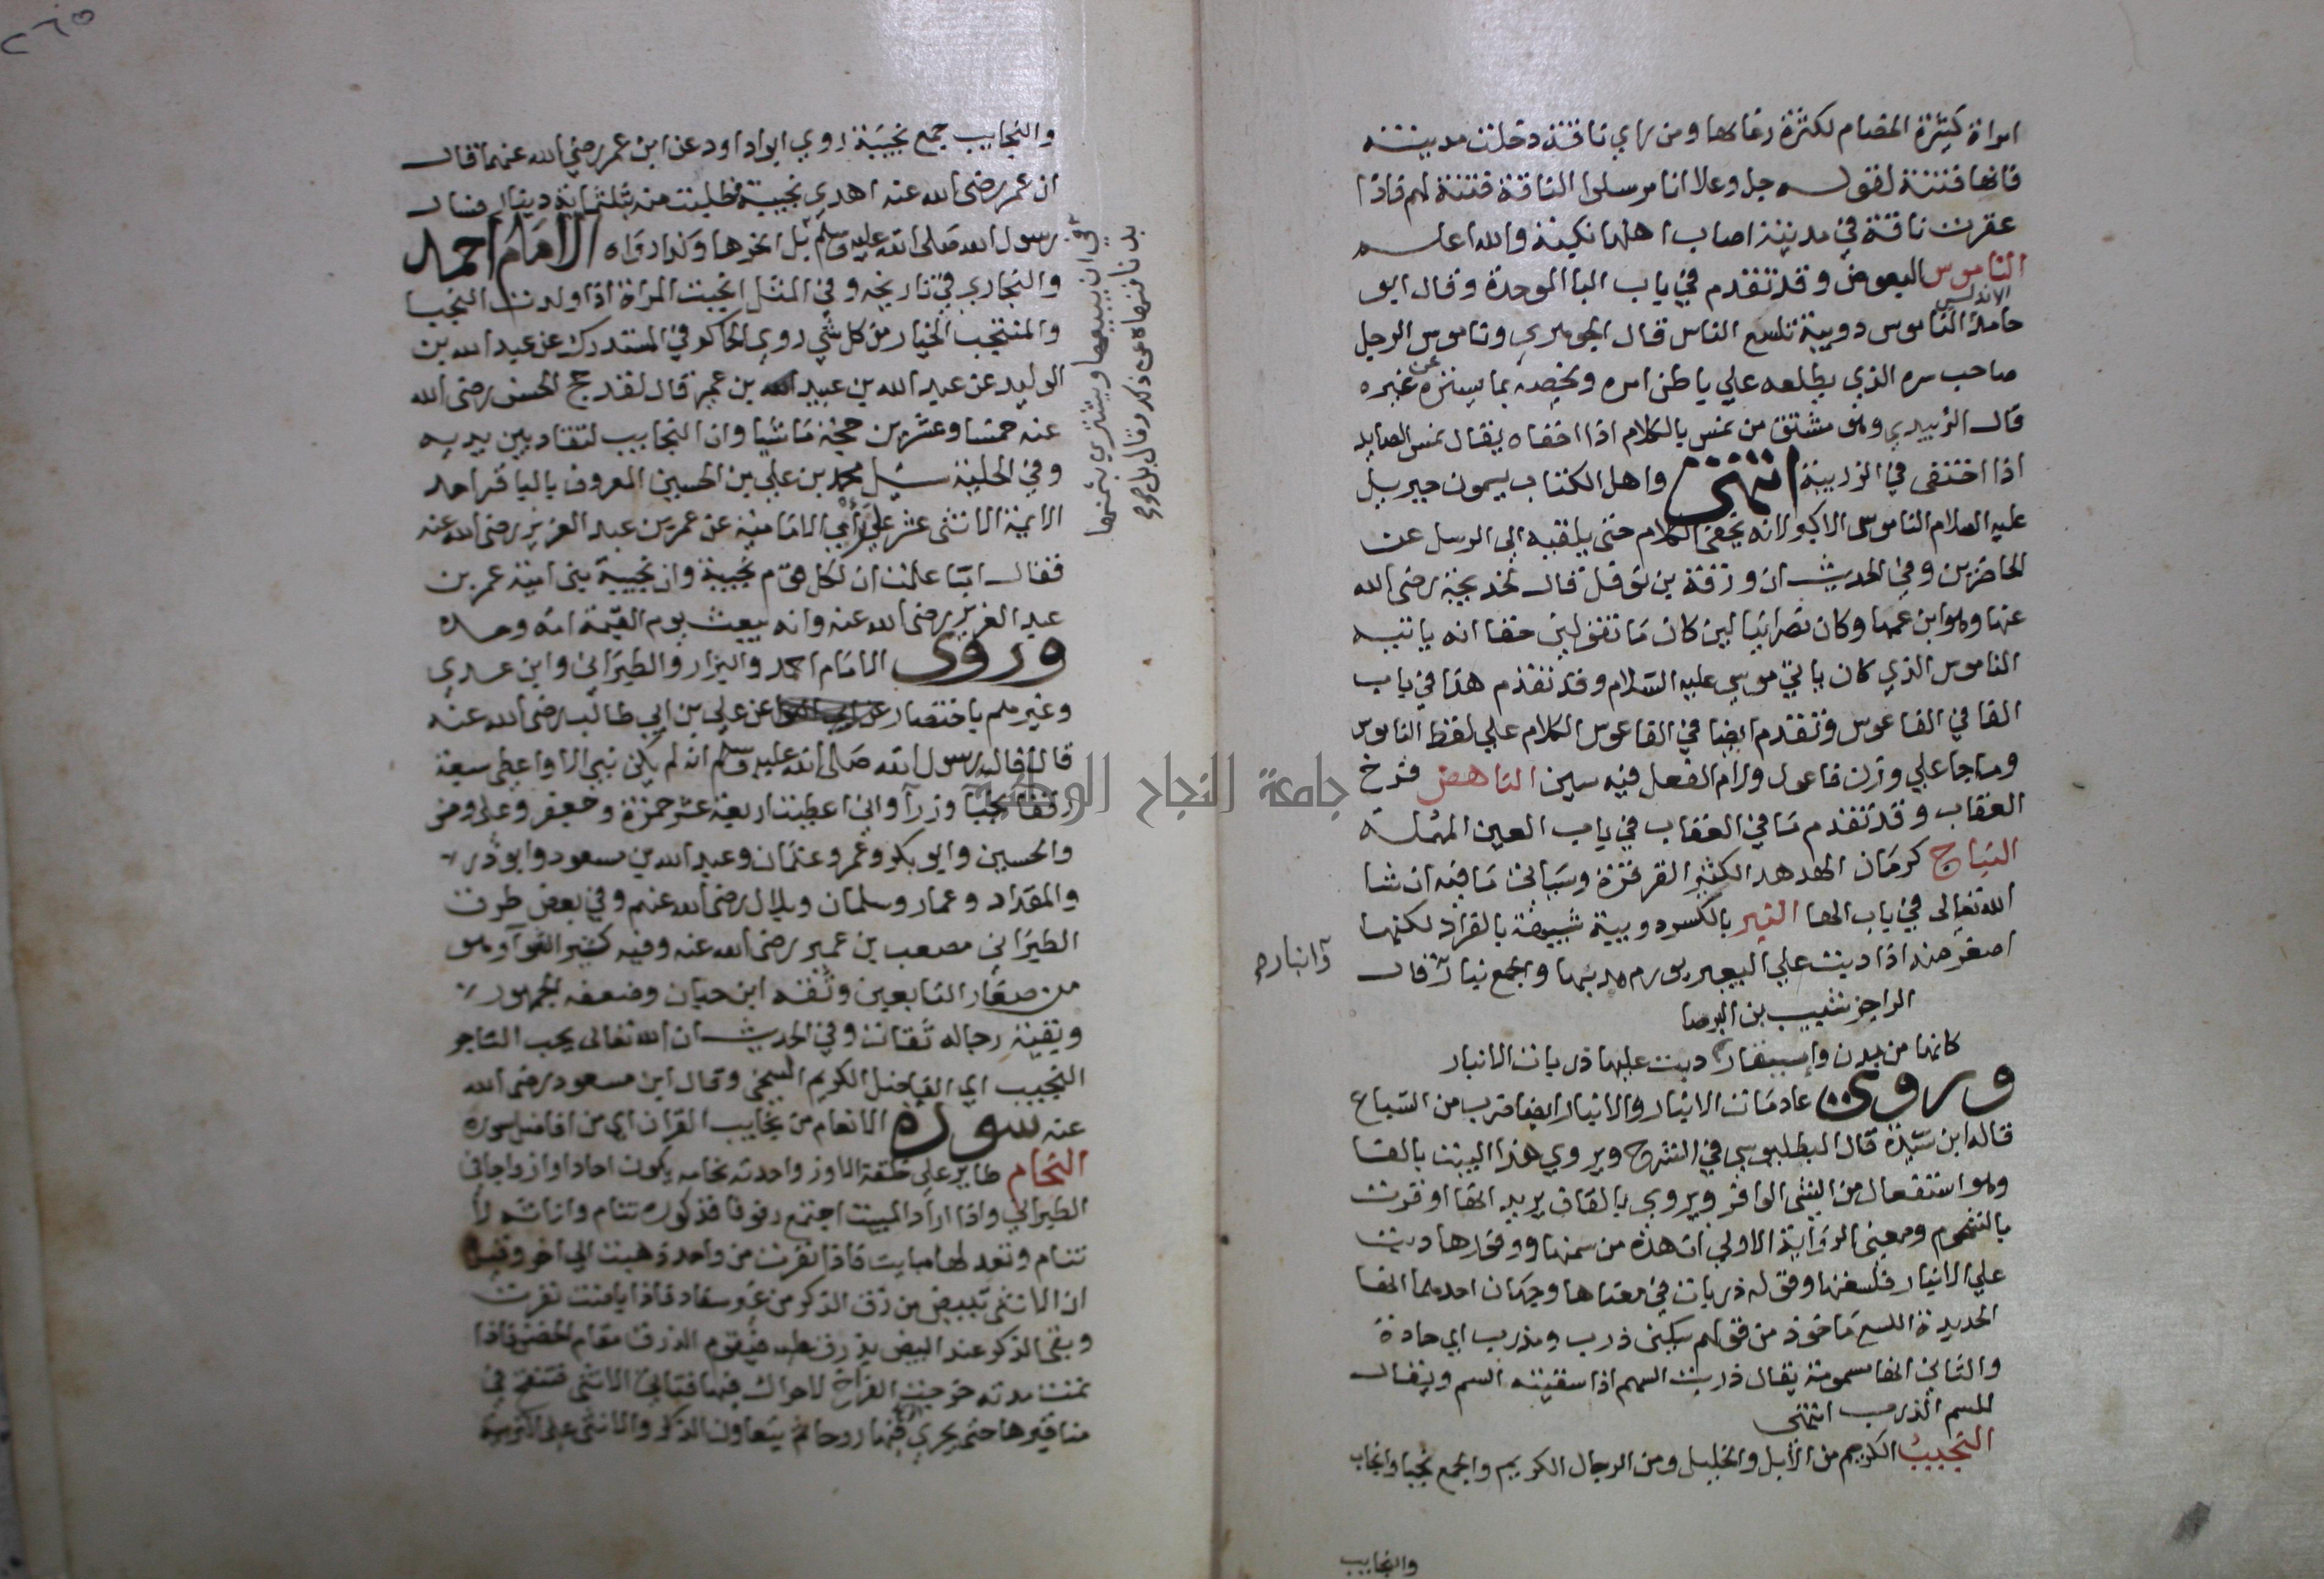 امراة كثيرة الخصام لكثرة رغايها ومن راي ناقة دخلت مدينته
فانها فتنة لقوله جل وعلا انا مرسلوا الناقة فتنة لهم فاذا
عقرت ناقة في مدينة اصاب اهلها نكبة والله اعلم
الناموس البعوض وقد تقدم في باب البا الموحدة وقال ابو
حامد الاندلسي الناموس دويبة تلسع الناس قال الجوهري وناموس الرجل
صاحب سره الذي يطلعه علي باطن امره ويخصه بما يستره عن غيره
قال الزبيدي وهو مشتق من نمس بالكلام اذا اخفاه يقال نمس الصايد
اذا اختفى في الزريبة انتهى واهل الكتاب يسمون جبريل
عليه السلام الناموس الاكبر لانه يخفى الكلام حتى يلقيه الى الرسل عن
الحاضرين وفي الحديث ان ورقة بن نوفل قال لخديجة رضى الله
عنها وهو ابن عمها وكان نصرانيا لين كان ما تقولين حقا انه ياتيه
الناموس الذي كان ياتي موسي عليه السلام وقد تقدم هذا في باب
الفا في الفاعوس وتقدم ايضا في القاعوس الكلام علي لفظ الناموس
وما جا علي وزن فاعول ولام الفعل فيه سين الناهض فرخ
العقاب وقد تقدم ما في العقاب في باب العين المهملة
النباج كرمان الهدهد الكثير القرقرة وسياتي ما فيه ان شا
الله تعالى في باب الها النبر بالكسر دويبة شبيهة بالقراد لكنها
اصغر منه اذا دبت علي البعير يورم مدبها والجمع نبار قال
وانبار صح
الراجز شبيب بن البرصا
كانها من بدن واستيفار دبت عليها ذربات الانبار
وروى عارمات الانبار والانبار ايضا ضرب من السباع
قاله ابن سيدة قال البطليوسي في الشرح ويروي هذا البيت بالفا
وهو استفعال من الشي الوافر ويروي بالقاف يريد انها اوقرت
بالشحوم ومعنى الرواية الاولي ان هذه من سمنها ووفارها دبت
علي الانبار فلسعتها وقوله ذربات في معناها وجهان احدهما انها
الحديدة اللسع ماخوذ من قولهم سكين ذرب ومذرب اي حادة
والثاني انها مسمومة يقال ذربت السهم اذا سقيته السم ويقال
للسم الذرب انتهى
النجيب الكريم من الابل والخيل ومن الرجال الكريم والجمع نجبا وانجاب
والنجايب
٢٦٥
والنجايب جمع نجيبة روي ابو داود عن ابن عمر رضي الله عنهما قال
ان عمر رضى الله عنه اهدى نجيبة فطلبت منه بثلثماية دينار فسال
رسول الله صلى الله عليه وسلم بل انحرها وكذا رواه الامام احمد
في ان يبيعها ويشتري بثمنها
بدنا فنهاه عن ذلك وقال بل صح
والبخاري في تاريخه وفي المثل انجبت المراة اذا ولدت النجبا
والمنتجب الخيار من كل شي روي الحاكم في المستدرك عن عبد الله بن
الوليد عن عبد الله بن عبيد الله بن عمير قال لقد حج الحسن رضى الله
عنه خمسا وعشرين حجة ماشيا وان النجايب لتقاد بين يديه
وفي الحلية سئل محمد بن علي بن الحسين المعروف بالباقر احد
الايمة الاثنى عشر علي راي الامامية عن عمر بن عبد العزيز رضى الله عنه
فقال اما علمت ان لكل قوم نجيبة وان نجيبة بني امية عمر بن
عبد العزيز رضى الله عنه وانه يبعث يوم القيمة امة وحده
وروى الامام احمد والبزار والطبراني وابن عدي
وغيرهم باختصار عن علي بن ابي طالب رضى الله عنه
قال قال رسول الله صلى الله عليه وسلم انه لم يكن نبي الا واعطي سبعة
رفقا نجبا وزرا واني اعطيت اربعة عشر حمزة وجعفر وعلى وحسن
والحسين وابو بكر وعمر وعثمان وعبد الله بن مسعود وابو ذر
والمقداد وعمار وسلمان وبلال رضى الله عنهم وفي بعض طرق
الطبراني مصعب بن عمير رضى الله عنه وفيه كثير النوا وهو
من صغار التابعين وثقه ابن حبان وضعفه الجمهور
وبقية رجاله ثقات وفي الحديث ان الله تعالى يحب التاجر
النجيب اي الفاضل الكريم السخي وقال ابن مسعود رضى الله
عنه سورة الانعام من نجايب القران اي من افاضل سوره
النحام طاير على خلقة الاوز واحدته نحامه يكون احادا وازواجا في
الطيران واذا اراد المبيت اجتمع رفوفا فذكوره تنام واناثه لا
تنام وتعد لها مبايت فاذا نفرت من واحد ذهبت الي اخر وقيل
ان الانثى تبيض من زق الذكر من غير سفاد فاذا باضت نفرت
وبقي الذكر عند البيض يذرق عليه فيقوم الذرق مقام الحضن فاذا
تمت مدته خرجت الفراخ لا حراك فيها فتاتي الانثى فتنفخ في
مناقيرها حتى يجري فيها روحا ثم يتعاون الذكر والانثى على التربية
جامعة النجاح الوطنية